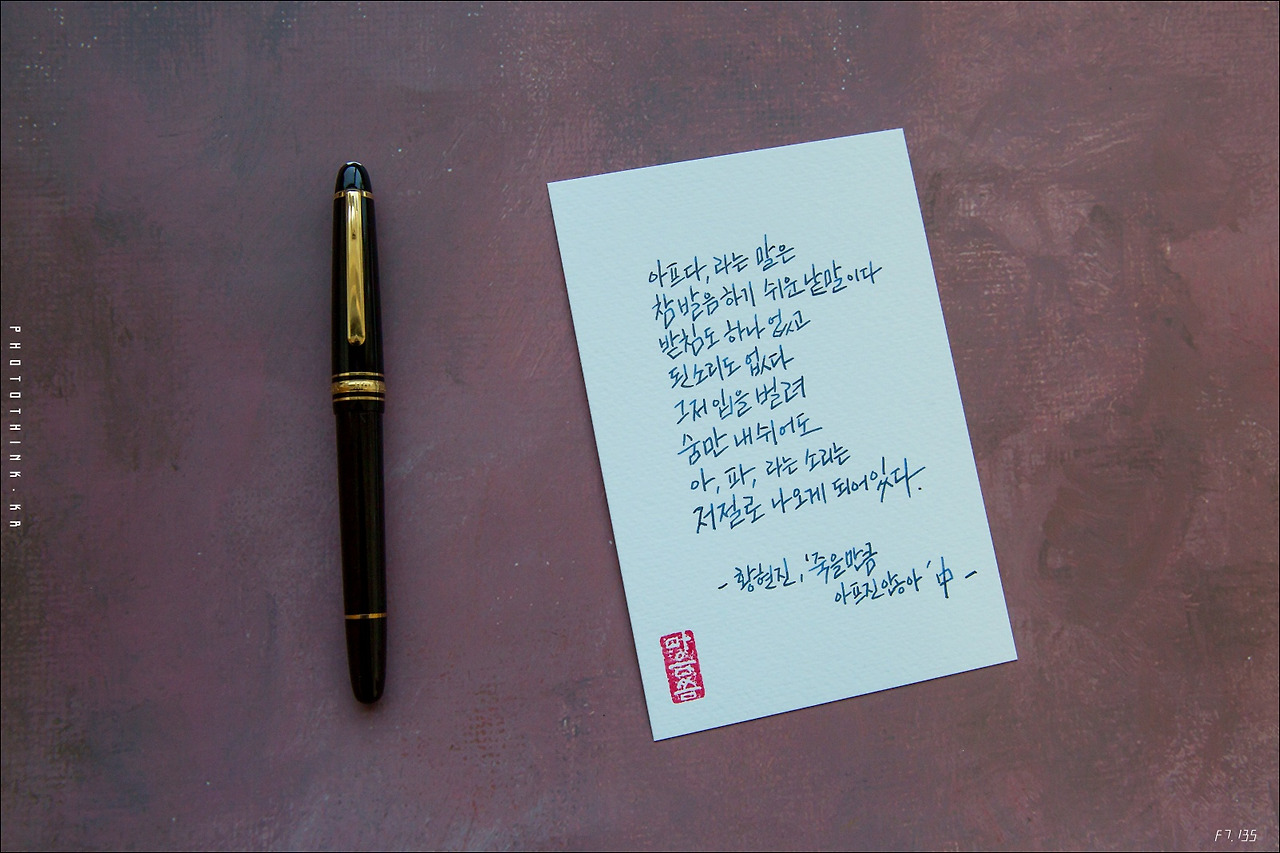 PHOTOTHINK.KR
아프다, 라는 말은
참 발음하기 쉬운 낱말이다
받침도 하나 없고
된소리도 없다
그저 입을 벌려
숨만 내쉬어도
아, 파, 라는 소리는
저절로 나오게 되어있다.
- 황현진, '죽을만큼
아프진 않아' 中 -
F7.135